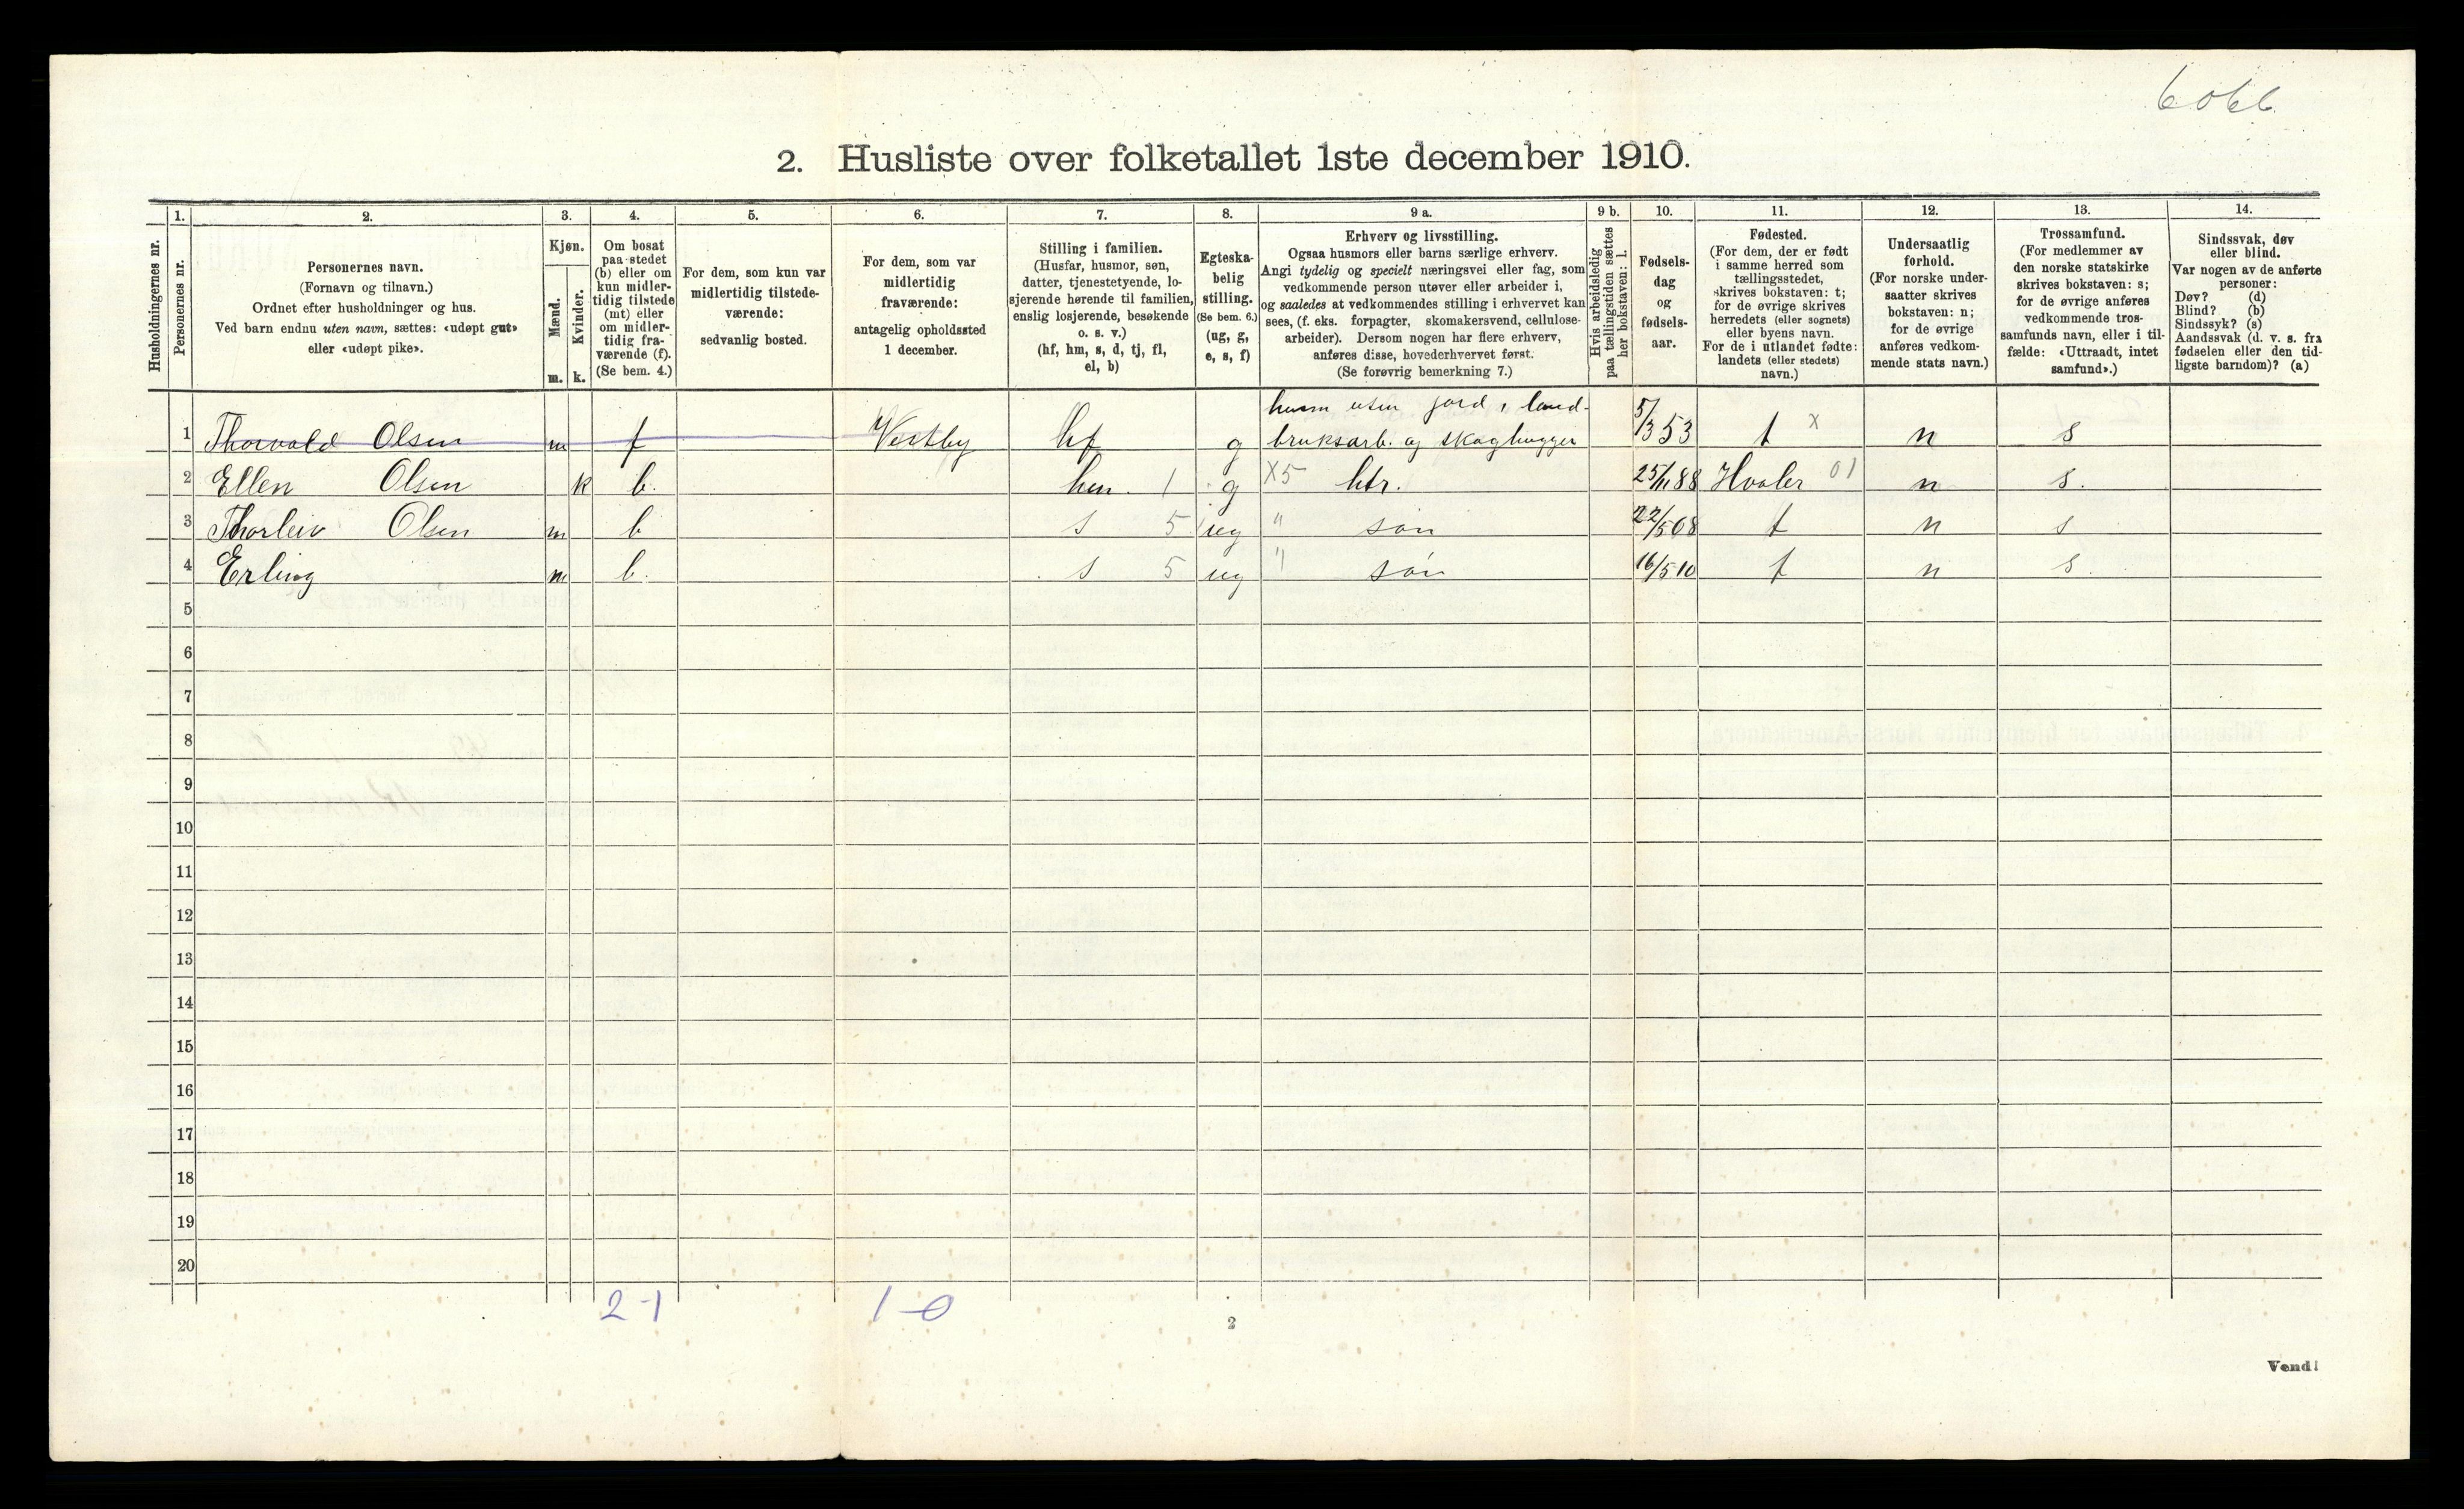 6066
2. Husliste over folketallet 1ste december 1910.
1. 2. 3. 4. 5. 6. 7. 8. 9 a. 9 b. 10. 11. 12. 13. 14.
Husholdningernes nr.
Personernes nr.
Personernes navn.
(Fornavn og tilnavn.)
Ordnet efter husholdninger og hus.
Ved barn endnu uten navn, sættes: «udøpt gut»
eller «udøpt pike».
Kjøn.
Mænd.
Kvinder.
m. k.
Om bosat
paa stedet
(b) eller om
kun midler-
tidig tilstede
(mt) eller
om midler-
tidig fra-
værende (f).
(Se bem. 4.)
For dem, som kun var
midlertidig tilstede-
værende:
sedvanlig bosted.
For dem, som var
midlertidig
fraværende:
antagelig opholdssted
1 december.
Stilling i familien.
(Husfar, husmor, søn,
datter, tjenestetyende, lo-
sjerende hørende til familien,
enslig losjerende, besøkende
o. s. v.)
(hf, hm, s, d, tj, fl,
el, b)
Egteska-
belig
stilling.
(Se bem. 6.)
(ug, g,
e, s, f)
Erhverv og livsstilling.
Ogsaa husmors eller barns særlige erhverv.
Angi tydelig og specielt næringsvei eller fag, som
vedkommende person utøver eller arbeider i,
og saaledes at vedkommendes stilling i erhvervet kan
sees, (f. eks. forpagter, skomakersvend, cellulose-
arbeider). Dersom nogen har flere erhverv,
anføres disse, hovederhvervet først.
(Se forøvrig bemerkning 7.)
Hvis arbeidsledig
paa tællingstiden sættes
her bokstaven: l.
Fødsels-
dag
og
fødsels-
aar.
Fødested.
(For dem, der er født
i samme herred som
tællingsstedet,
skrives bokstaven: t;
for de øvrige skrives
herredets (eller sognets)
eller byens navn.
For de i utlandet fødte:
landets (eller stedets)
navn.)
Undersaatlig
forhold.
(For norske under-
saatter skrives
bokstaven: n;
for de øvrige
anføres vedkom-
mende stats navn.)
Trossamfund.
(For medlemmer av
den norske statskirke
skrives bokstaven: s;
for de øvrige anføres
vedkommende tros-
samfunds navn, eller i til-
fælde: «Uttraadt, intet
samfund».)
Sindssvak, døv
eller blind.
Var nogen av de anførte
personer:
Døv? (d)
Blind? (b)
Sindssyk? (s)
Aandssvak (d. v. s. fra
fødselen eller den tid-
ligste barndom)? (a)
husm uten jord, land-
1 Thorvald Olsen m f Vestby hf g bruksarb. og skoghugger 5/3 53 t x n s
2 Ellen Olsen k b. hm. 1 g X5 htr. 25/11 88 Hvaler 01 n s.
3 Thorleiv Olsen m b s 5 ug " søn 22/5 08 t n s
4 Erling m b. s 5 ug " søn 16/5 10 t n s.
5
6
7
8
9
10
11
12
13
14
15
16
17
18
19
20
2-1 1-0
2
Vend!